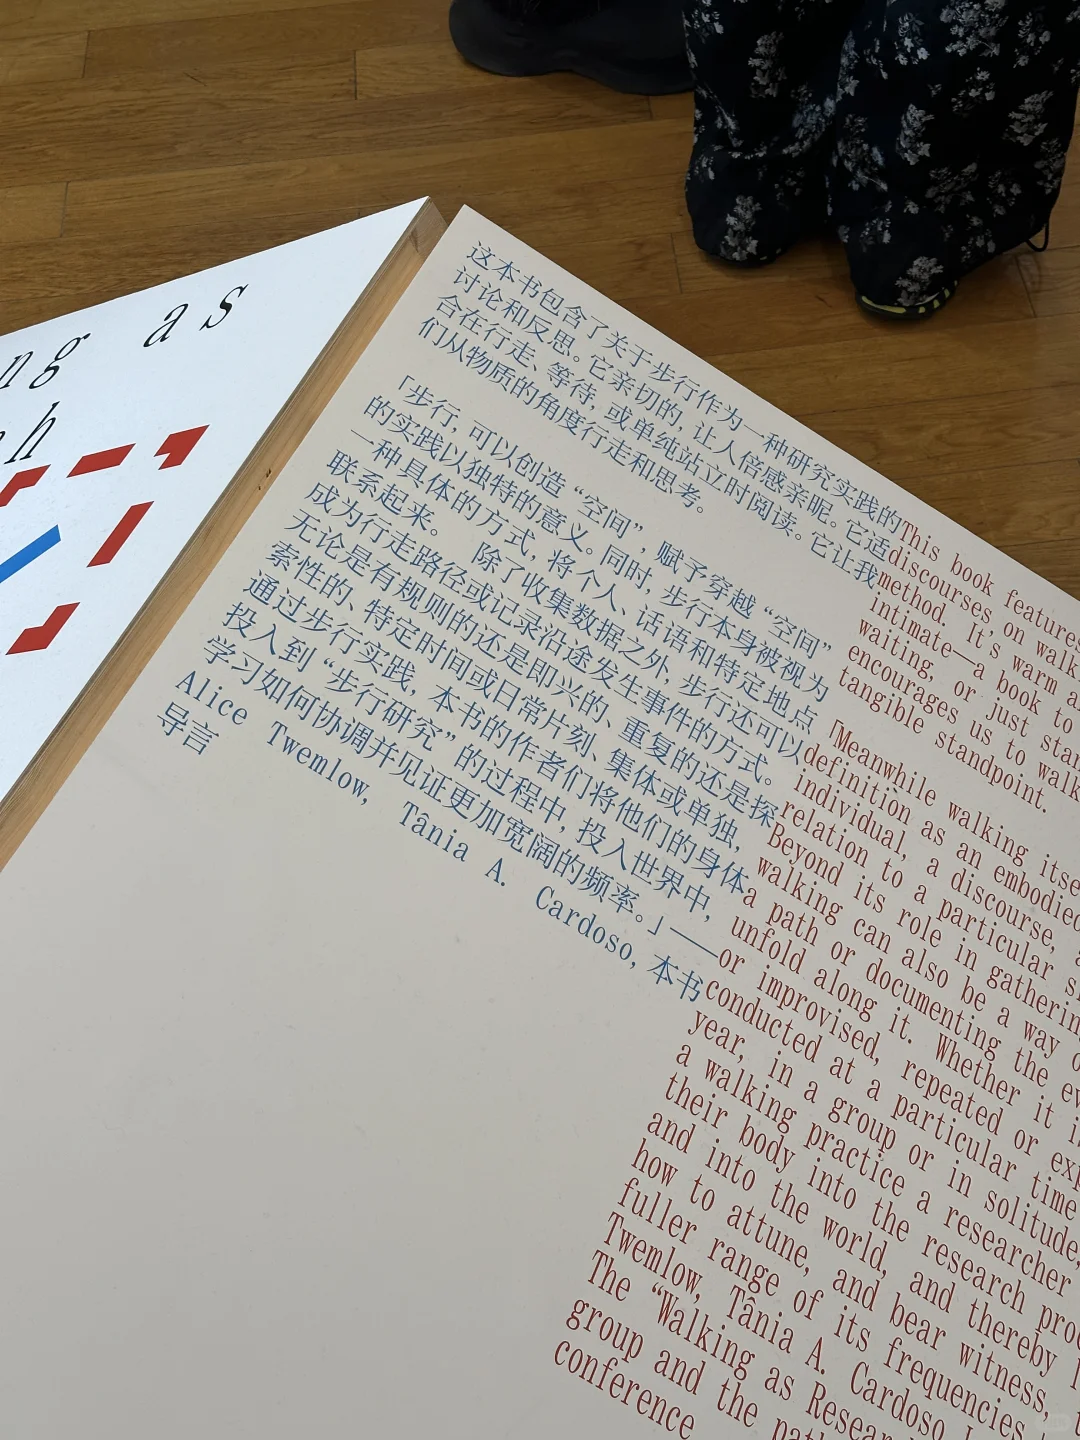 as
ng
h
这本书包含了关于步行作为一种研究实践的
讨论和反思。它亲切的，让人倍感亲昵。它适
合在行走、等待，或单纯站立时阅读。它让我
们从物质的角度行走和思考。
「步行，可以创造“空间”，赋予穿越“空间”
的实践以独特的意义。同时，步行本身被视为
一种具体的方式，将个人、话语和特定地点
联系起来。 除了收集数据之外，步行还可以
成为行走路径或记录沿途发生事件的方式。
无论是有规则的还是即兴的、重复的还是探
索性的、特定时间或日常片刻、集体或单独，
通过步行实践，本书的作者们将他们的身体
投入到“步行研究”的过程中，投入世界中，
学习如何协调并见证更加宽阔的频率。」——
Alice Twemlow, Tânia A. Cardoso, 本书
导言
This book features
discourses on walk
method. It's warm a
intimate—a book to
waiting, or just stan
encourages us to walk
tangible standpoint.
「Meanwhile walking itse
definition as an embodied
individual, a discourse, a
relation to a particular s
Beyond its role in gatherin
walking can also be a way o
a path or documenting the ev
unfold along it. Whether it i
or improvised, repeated or exp
conducted at a particular time
year, in a group or in solitude,
a walking practice a researcher
their body into the research proc
and into the world, and thereby
how to attune, and bear witness,
fuller range of its frequencies
Twemlow, Tânia A. Cardoso
The “Walking as Resear
group and the
conference